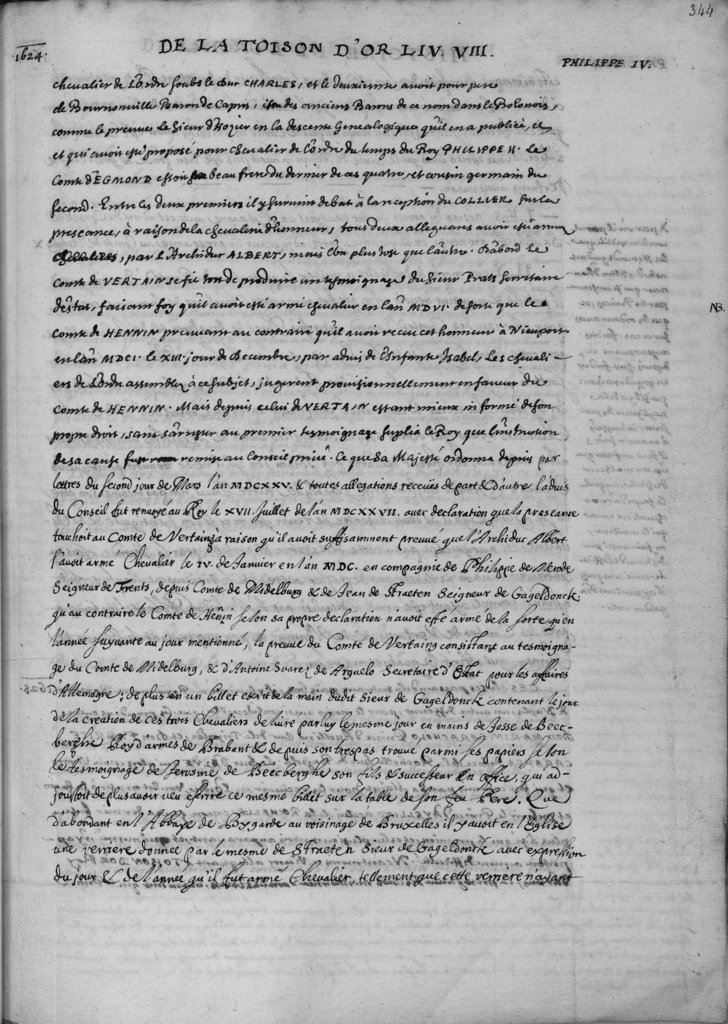 344
1624.
DE LA TOISON D'OR LIV. VIII.
PHILIPPE IV.
chevalier de l'ordre soubs le dur CHARLES, et le deuxiesme avoit pour pere
de Bournonville Baron de Capres, issu des anciens Barons de ce nom dans le Bolonois,
comme le preuve le Sieur d'Hozier en la descente Genealogique qu'il en a publiée, et
et qui avoit esté proposé pour chevalier de l'ordre du temps du Roy PHILIPPE II. Le
Comte d'EGMOND estoit beau frere du dernier de ces quatre, et cousin germain du
second. Entre les deux premiers il y survint debat à la reception du COLLIER sur la
presceance, à raison de la chevalerie d'honneur, tous deux alleguans avoir esté armez
Chevaliers, par l'Archiduc ALBERT, mais l'un plus tost que l'autre. D'abord le
Comte de VERTAIN se fit fort de produire un tesmoignage du Sieur Prats Secretaire
d'Estat, faisant foy qu'il avoit esté armé chevalier en l'an MDVI. de sorte que le
NB.
Comte de HENNIN preuvant au contraire qu'il avoit receu cet honneur à Nieuport
en l'an MDCI. le XIII. jour de Decembre, par advis de l'Infante Isabel, Les chevali-
ers de l'ordre assemblez à ce subjet, jugerent provisionnellement en faveur du
Comte de HENNIN. Mais depuis celui de VERTAIN estant mieux informé de son
propre droit, sans s'arrester au premier tesmoignage suplia le Roy que l'instruction
de sa cause fut remise au Conseil privé. Ce que sa Majesté ordonna depuis par
lettres du second jour de Mars l'an MDCXXV. & toutes allegations receües de part & d'autre l'aduis
du Conseil fut renvoyé au Roy le XVII. Juillet de l'an MDCXXVII. avec declaration que la presceance
touchoit au Comte de Vertaing à raison qu'il avoit suffisamment preuvé que l'Archiduc Albert
l'avoit armé Chevalier le IV. de Janvier en l'an MDC. en compagnie de Philippe de Merode
Seigneur de Frents, depuis Comte de Midelburg & de Jean de Straeten Seigneur de Gageldonck:
qu'au contraire le Comte de Henin selon sa propre declaration n'avoit esté armé de la sorte qu'en
l'année suyvante au jour mentionné, la preuve du Comte de Vertaing consistant au tesmoigna-
ge du Comte de Midelburg, & d'Antoine Suarez de Arguelo Secretaire d'Estat pour les affaires
d'Allemagne; de plus en un billet escrit de la main dudit sieur de Gageldonck contenant le jour
de la creation de ces trois Chevaliers delivré par luy le mesme jour en mains de Josse de Beec-
berghe Roy d'armes de Brabant & depuis son trespas trouvé parmi ses papiers selon
le tesmoignage de Jerosme de Beecberghe son fils & successeur en office, qui ad-
joustoit de plus avoir veu escrire ce mesme billet sur la table de son feu Pere, Que
d'abondant en l'Abbaye de Bygarde au voisinage de Bruxelles il y avoit en l'Eglise
une verriere donnée par le mesme de Straeten Sieur de Gageldonck avec expression
du jour & de l'année qu'il fut armé Chevalier, tellement que cette verriere n'ayant